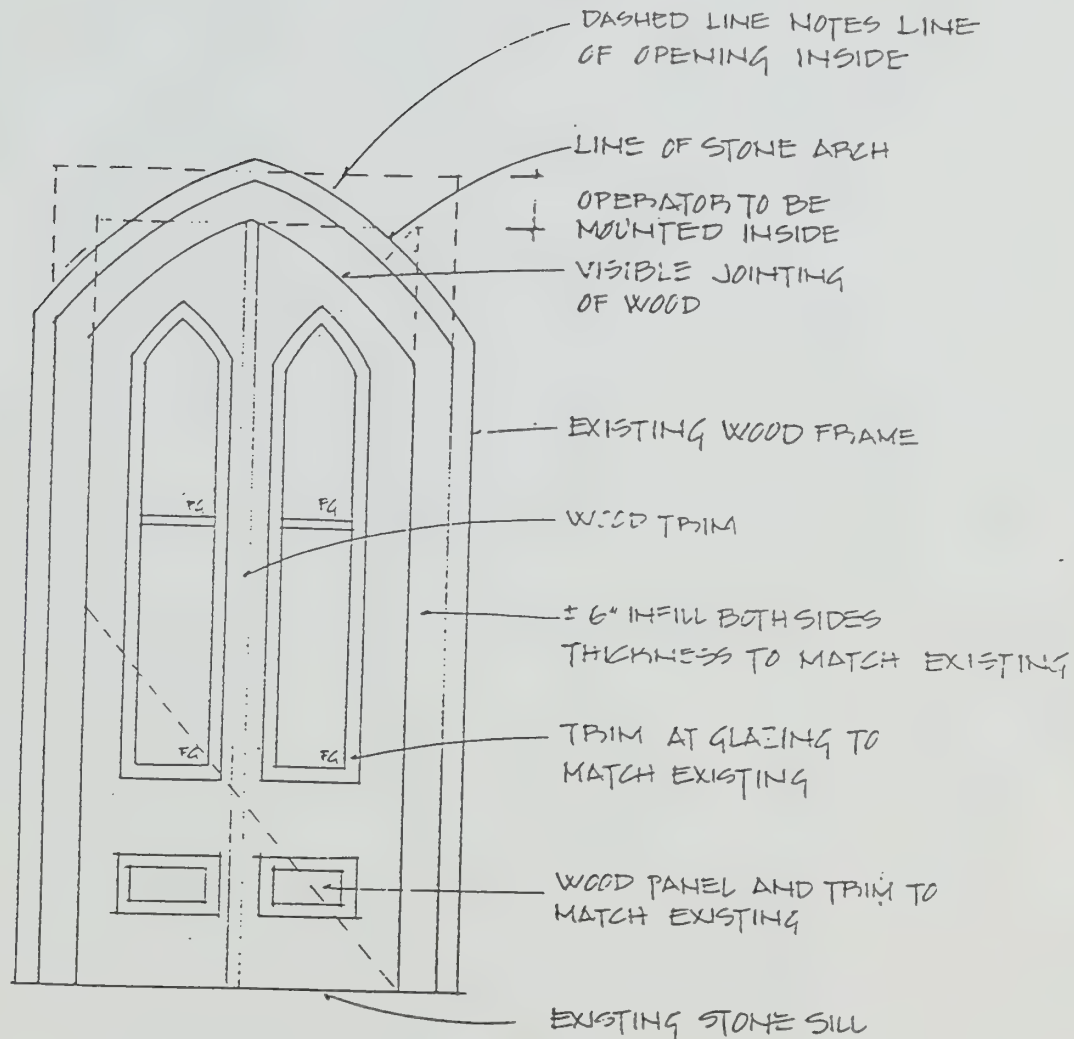 DASHED LINE NOTES LINE
OF OPENING INSIDE
LINE OF STONE ARCH
OPERATOR TO BE
MOUNTED INSIDE
VISIBLE JOINTING
OF WOOD
EXISTING WOOD FRAME
FG FG
WOOD TRIM
± 6" INFILL BOTH SIDES
THICKNESS TO MATCH EXISTING
FG FG
TRIM AT GLAZING TO
MATCH EXISTING
WOOD PANEL AND TRIM TO
MATCH EXISTING
EXISTING STONE SILL